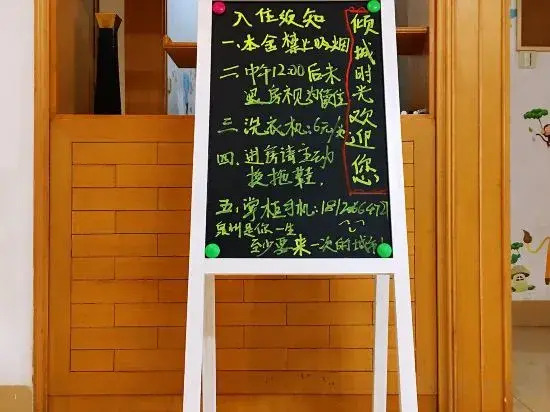 入住须知
一、本全禁止吸烟
二、中午12:00后未
退房视为续住
三、洗衣机:6元/次
四、进房请主动
换拖鞋.
五、掌柜手机:
泉州是你一生
至少要来一次的城市!
倾城时光欢迎您